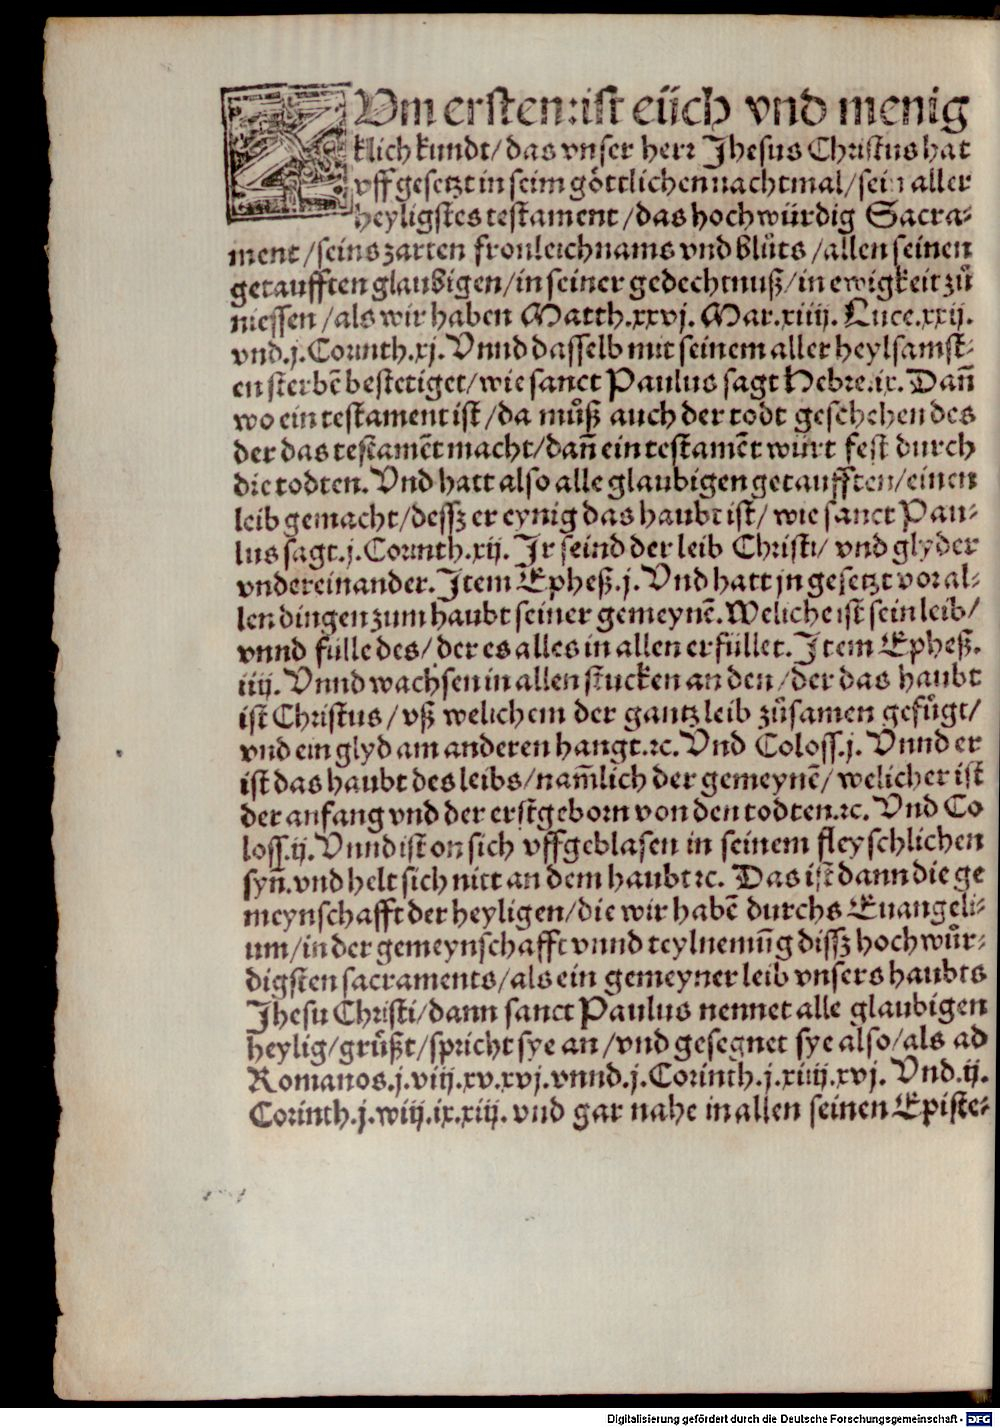 ZUm ersten: ist eüch vnd menig
klich kundt/ das vnser herr Jhesus Christus hat
vff gesetzt in seim göttlichen nachtmal/ sein aller
heyligstes testament/ das hochwürdig Sacra-
ment/ seins zarten fronleichnams vnd blůts/ allen seinen
getaufften glaubigen/ in seiner gedechtnuß/ in ewigkeit zů
niessen/ als wir haben Matth.xxvj. Mar.xiiij. Luce.xxij.
vnd.j.Corinth.xj. Vnnd dasselb mit seinem aller heylsamst-
en sterbē bestetiget/ wie sanct Paulus sagt Hebre.ix. Dañ
wo ein testament ist/ da můß auch der todt geschehen des
der das testamēt macht/ dañ ein testamēt würt fest durch
die todten. Vnd hatt also alle glaubigen getaufften/ einen
leib gemacht/ dessz er eynig das haubt ist/ wie sanct Pau-
lus sagt.j.Corinth.xij. Jr seind der leib Christi/ vnd glyder
vndereinander. Jtem Epheß.j. Vnd hatt jn gesetzt vor al-
len dingen zum haubt seiner gemeynē. Weliche ist sein leib/
vnnd fülle des/ der es alles in allen erfüllet. Jtem Epheß.
iiij. Vnnd wachsen in allen stucken an den/ der das haubt
ist Christus/ vß welichem der gantz leib zůsamen gefůgt/
vnd ein glyd am anderen hangt.ꝛc. Vnd Coloss.j. Vnnd er
ist das haubt des leibs/ nam̃lich der gemeynē/ welicher ist
der anfang vnd der erstgeborn von den todten.ꝛc. Vnd Co
loss.ij. Vnnd ist on sich vffgeblasen in seinem fleyschlichen
syñ. vnd helt sich nitt an dem haubt ꝛc. Das ist dann die ge
meynschafft der heyligen/ die wir habē durchs Euangeli-
um/ in der gemeynschafft vnnd teylnemũg dissz hochwůr-
digsten sacraments/ als ein gemeyner leib vnsers haubts
Jhesu Christi/ dann sanct Paulus nennet alle glaubigen
heylig/ grůßt/ spricht sye an/ vnd gesegnet sye also/ als ad
Romanos.j.viij.xv.xvj. vnnd.j.Corinth.j.xiiij.xvj. Vnd.ij.
Corinth.j.wiij.ix.xiij. vnd gar nahe in allen seinen Episte-
Digitalisierung gefördert durch die Deutsche Forschungsgemeinschaft - DFG